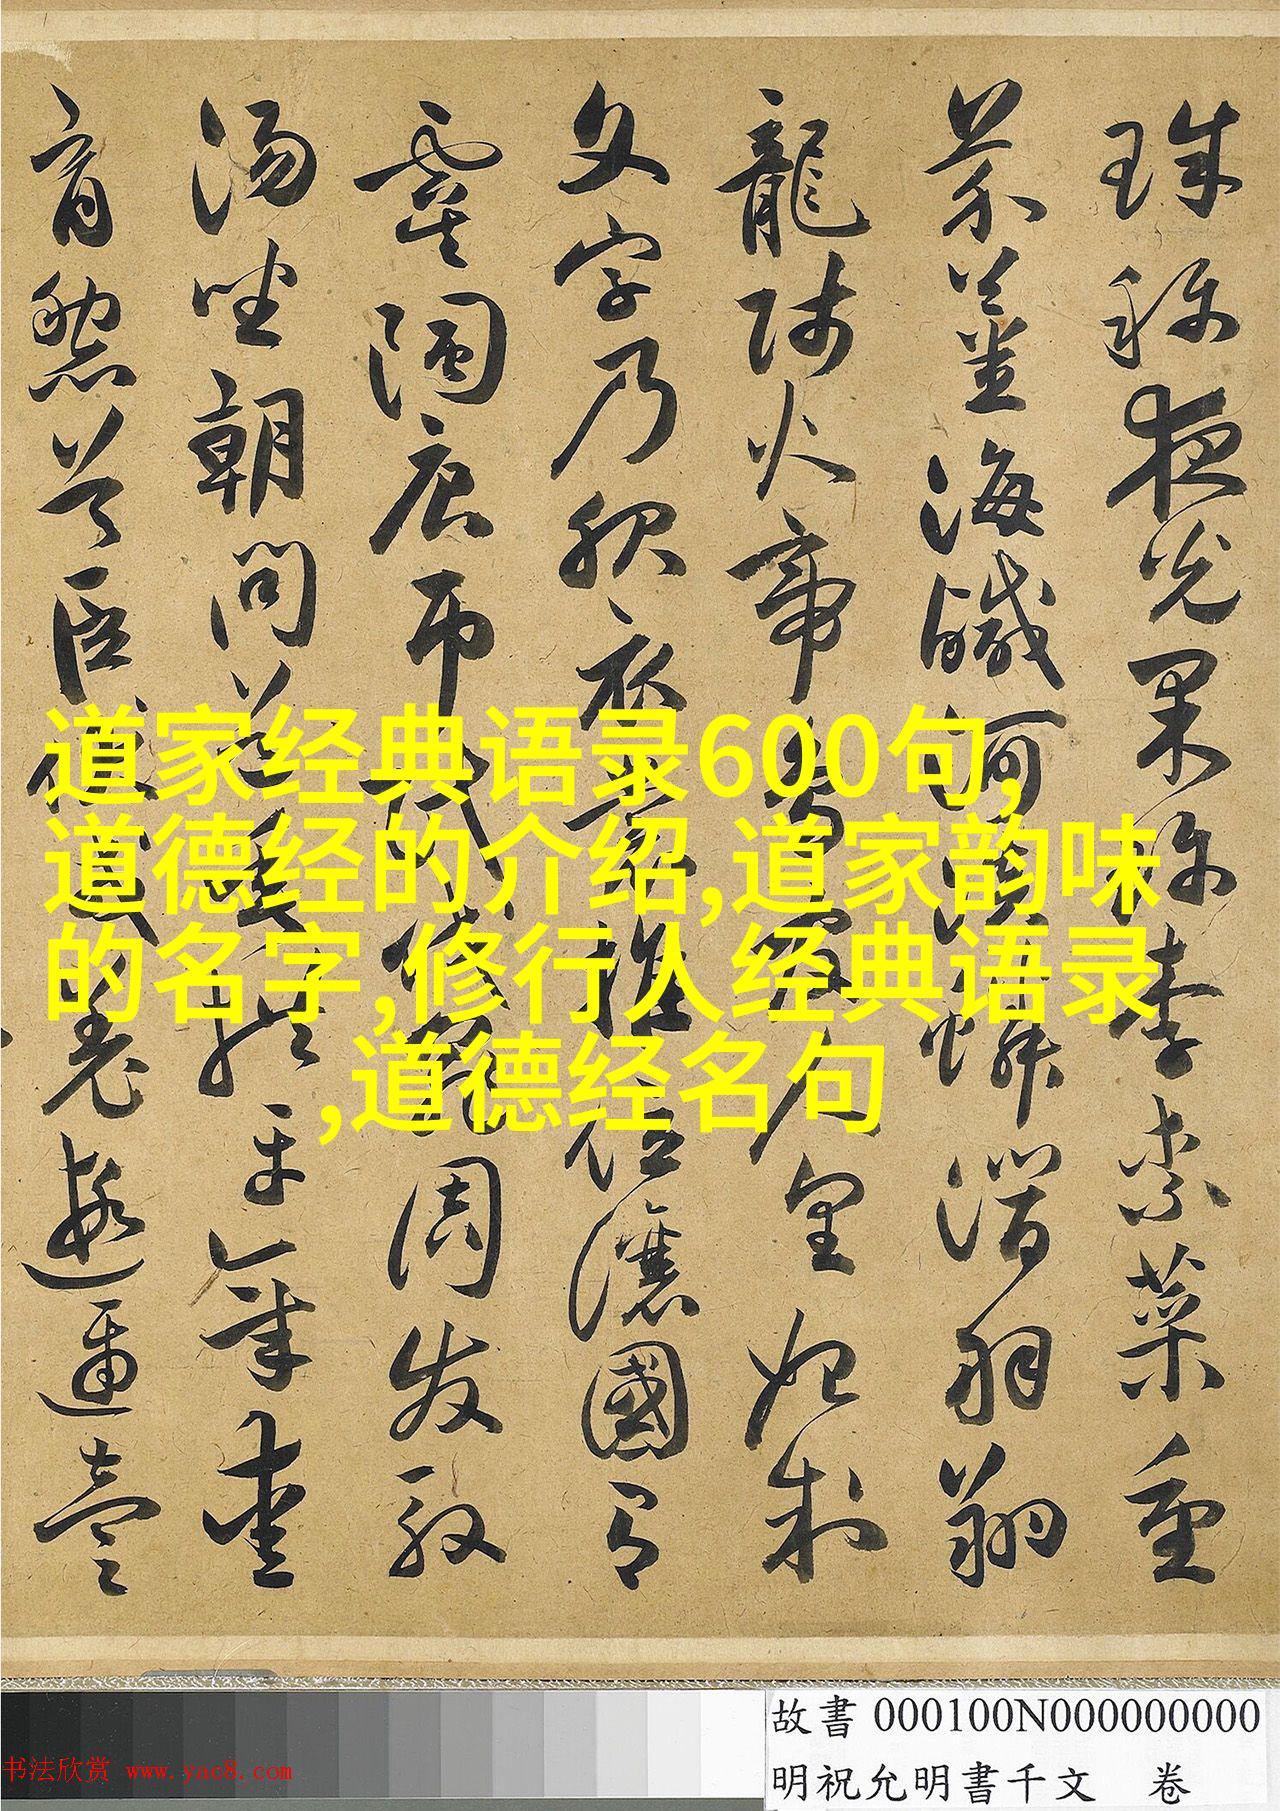 珠稱夜光果珍李柰菜重
芥薑海鹹河淡鱗潛羽翔
龍師火帝鳥官人皇始制
文字乃服衣裳推位讓國有
虞陶唐弔民伐罪周發殷
湯坐朝問道垂拱平章愛
育黎首臣伏戎羌遐邇壹
道家经典语录600句,
道德经的介绍,道家韵味
的名字,修行人经典语录
,道德经名句
故書 000100N000000000
明祝允明書千文 卷
书法欣赏 www.yac8.com